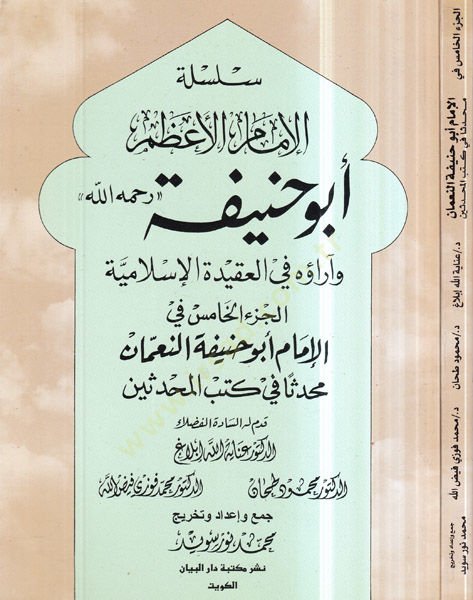 سلسلة
الإمام الأعظم
أبو حنيفة «رحمه الله»
وآراؤه في العقيدة الإسلامية
الجزء الخامس في
الإمام أبو حنيفة النعمان
محدثًا في كتب المحدثين
قدم له السادة الفضلاء
الدكتور عناية الله إبلاغ
الدكتور محمود طحان الدكتور محمد فوزي فيض الله
جمع وإعداد وتخريج
محمد نور سويد
نشر مكتبة دار البيان
الكويت
الجزء الخامس في
الإمام أبو حنيفة النعمان
محدثاً في كتب المحدثين
د. / عناية الله إبلاغ
د. / محمود طحان
د. / محمد فوزي فيض الله
جمع وإعداد وتخريج
محمد نور سويد